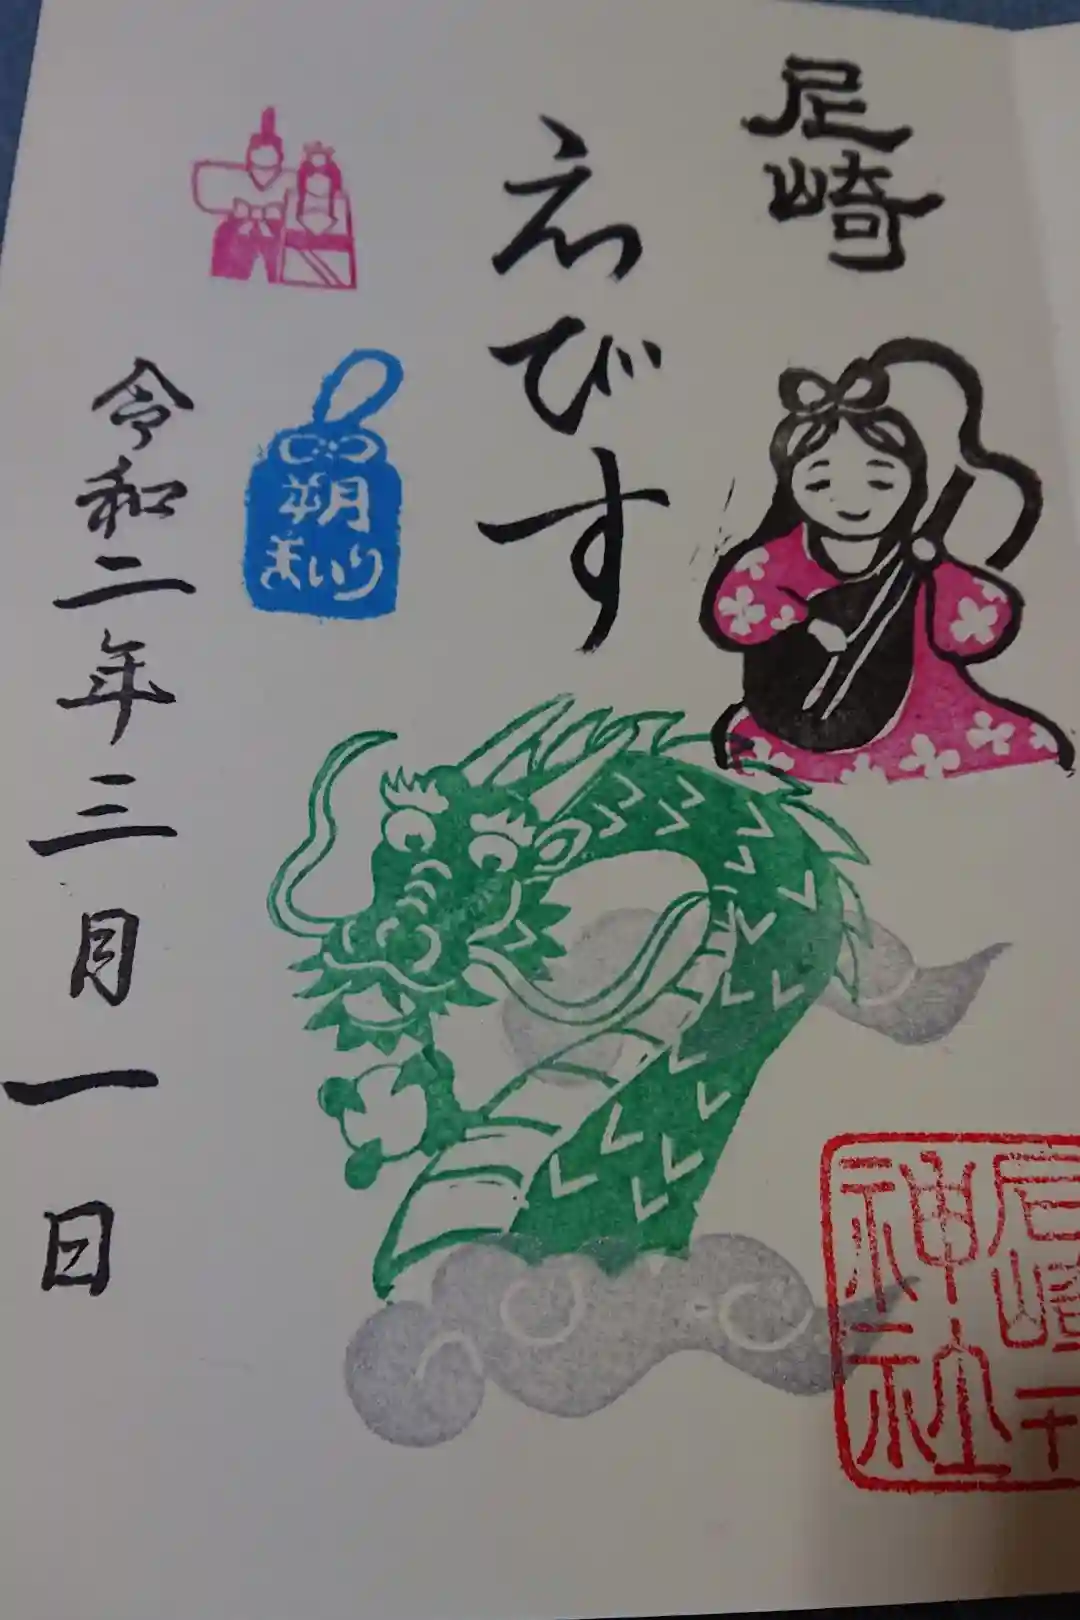 尼崎
えびす
朔月
まいり
令和二年三月一日
神社